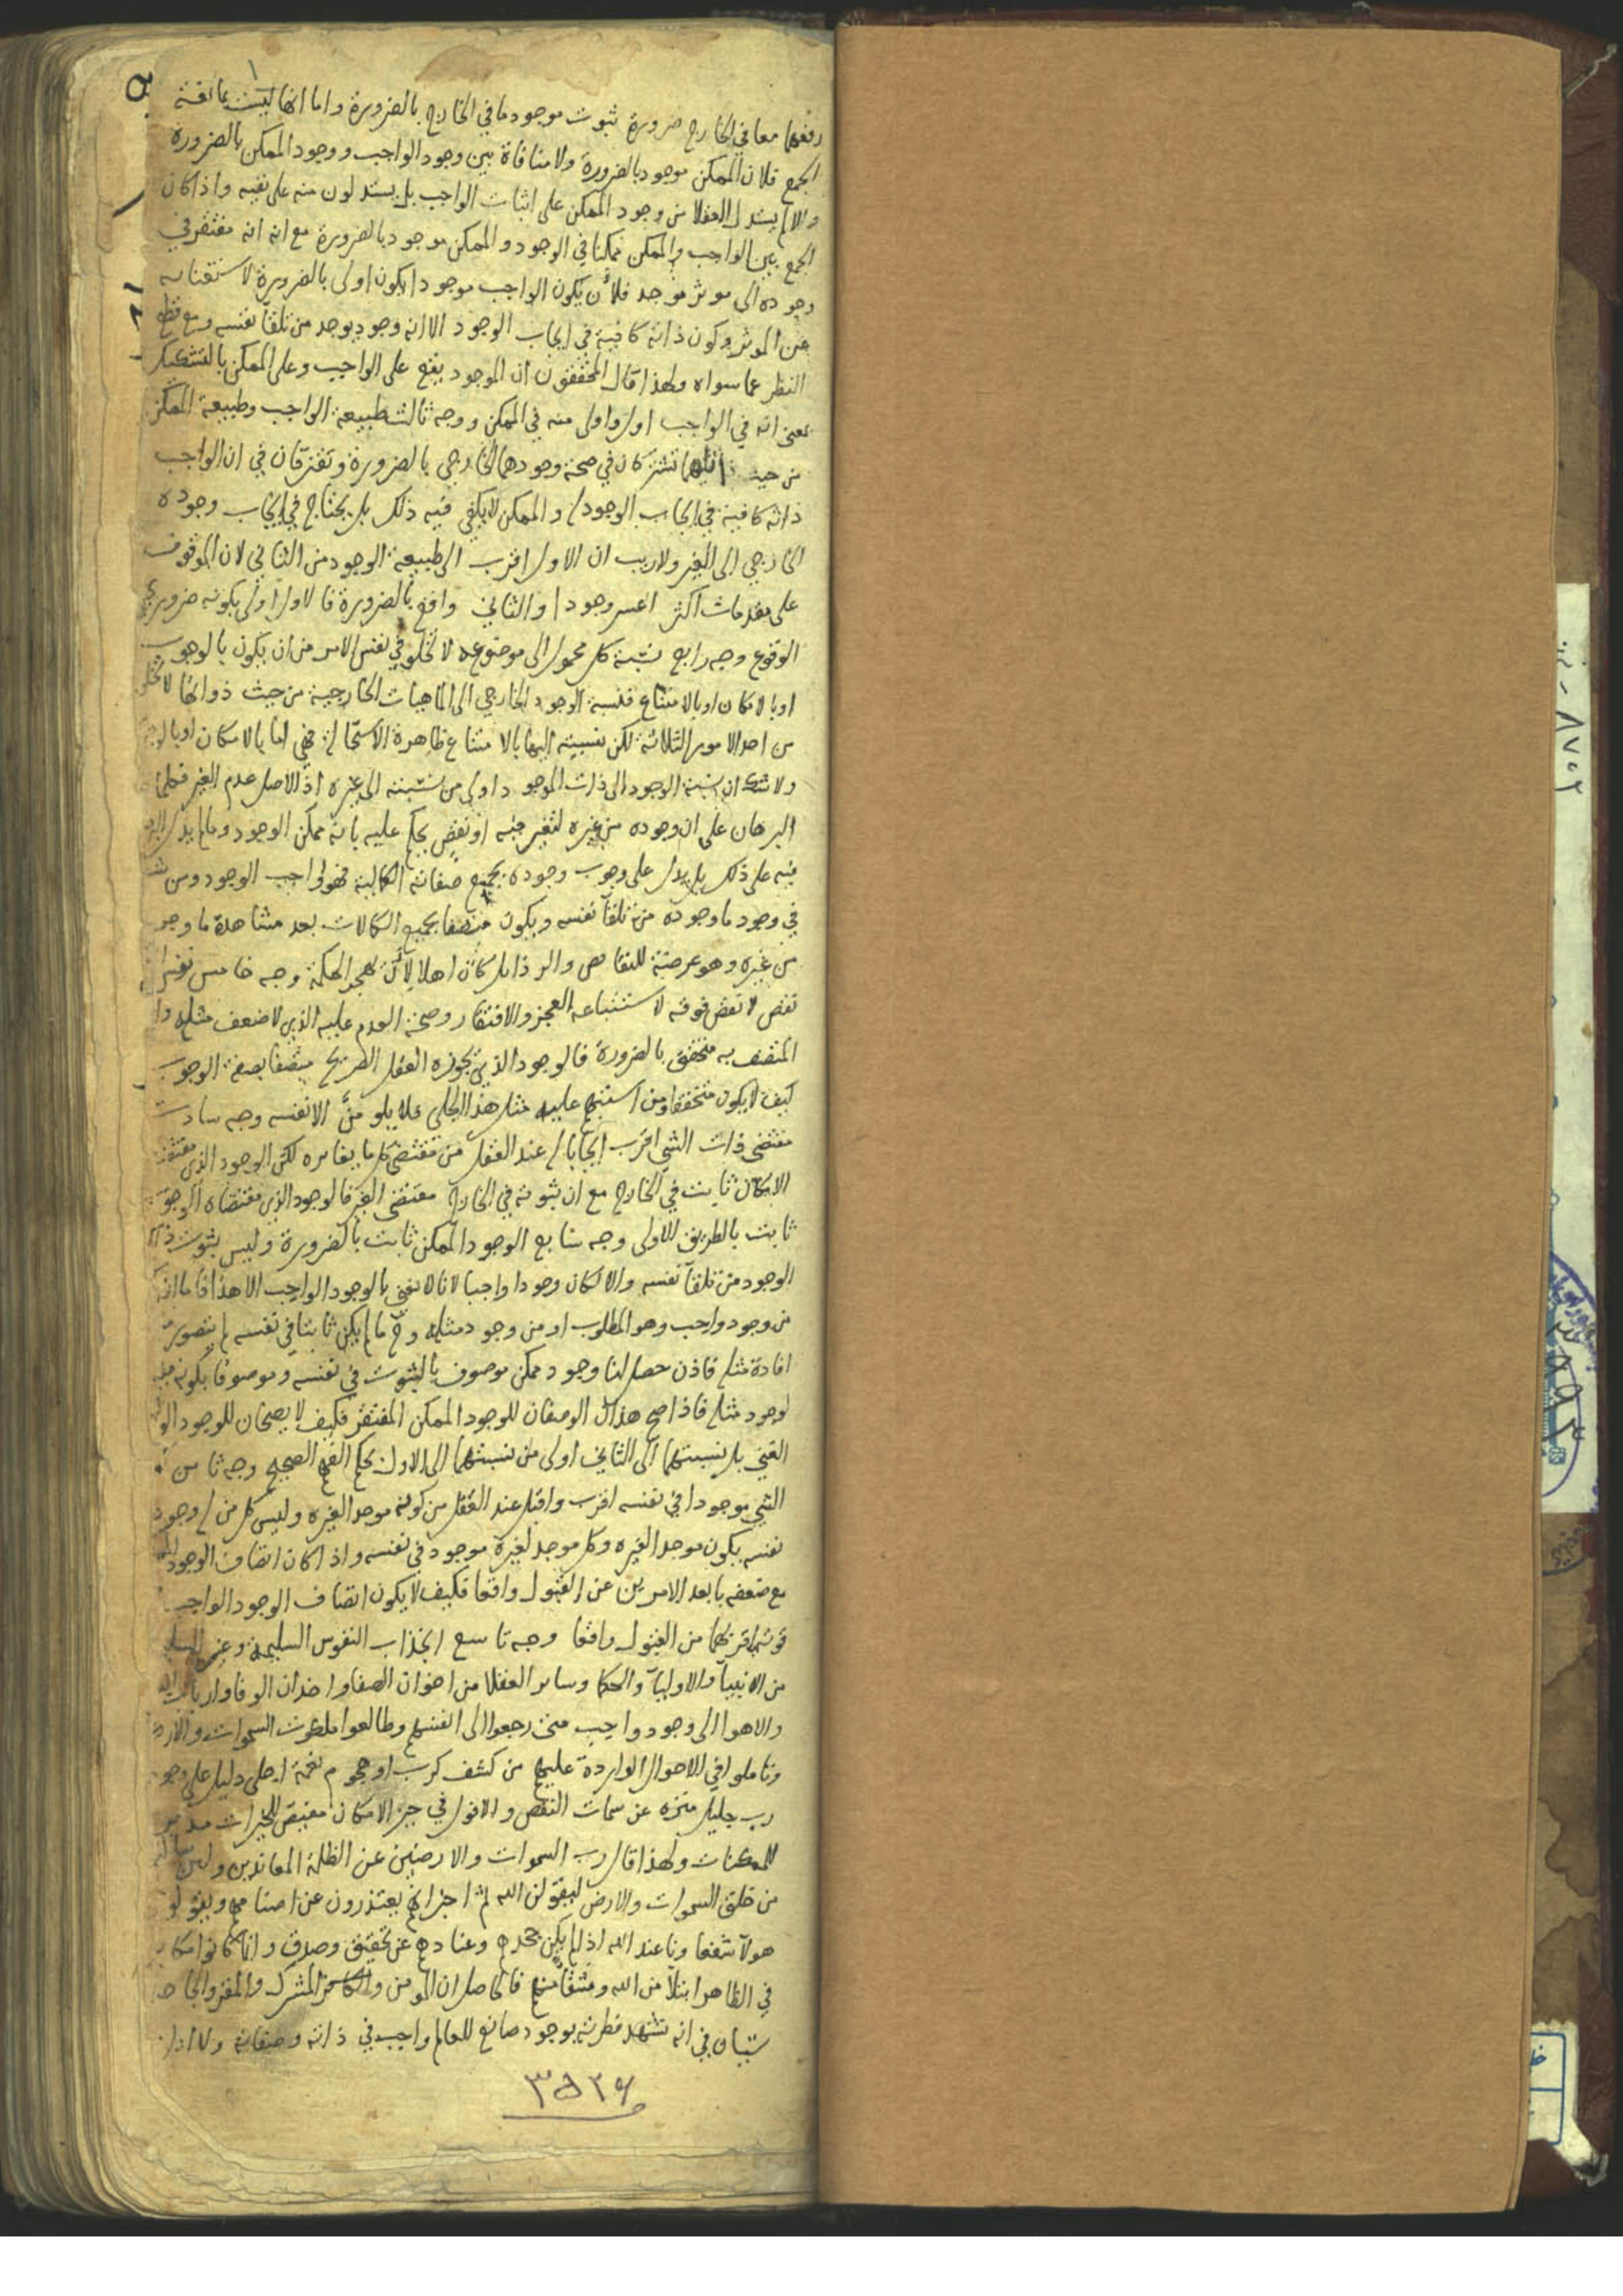 رفعهما معا في الخارج ضرورة ثبوت موجود ما في الخارج بالضرورة واما انها ليست مانعة
الجمع فلان الممكن موجود بالضرورة ولا منافاة بين وجود الواجب ووجود الممكن بالضرورة
والا لم يستدل العقلا من وجود الممكن على اثبات الواجب بل يستدلون منه على نفيه واذا كان
الجمع بين الواجب والممكن ممكنا في الوجود والممكن موجود بالضرورة مع انه انه مفتقر في
وجوده الى موثر موجد فلأن يكون الواجب موجودا يكون اولى بالضرورة لاستغنائه
عن الموثر وكون ذاته كافية في ايجاب الوجود الا انه وجود يوجد من تلقآ نفسه ومع قطع
النظر عما سواه ولهذا قال المحققون ان الموجود يقع على الواجب وعلى الممكن بالتشكيك
بمعنى انه في الواجب اول واولى منه في الممكن ووجه ثالث طبيعة الواجب وطبيعة الممكن
من حيث ذاتهما تشتركان في صحة وجودهما الخارجي بالضرورة وتفترقان في ان الواجب
ذاته كافية في ايجاب الوجود والممكن لا يكفي فيه ذلك بل يحتاج في ايجاب وجوده
الخارجي الى الغير ولا ريب ان الاول اقرب الى طبيعة الوجود من الثاني لان الموقوف
على مقدمات اكثر اعسر وجودا والثاني واقع بالضرورة فالاول اولى بكونه ضروري
الوقوع وجه رابع نسبة كل محمول الى موضوعه لا تخلو في نفس الامر من ان يكون بالوجوب
او بالامكان او بالامتناع فنسبة الوجود الخارجي الى الماهيات الخارجية من حيث ذواتها لا تخلو
من احد الامور الثلاثة لكن نسبته اليها بالامتناع ظاهرة الاستحالة فهي اما بالامكان او بالوجوب
ولا شك ان نسبة الوجود الى ذات الموجود اولى من نسبته الى غيره اذ الاصل عدم الغير فكلما
البرهان على ان وجوده من غيره لتغير فيه او نقص يحكم عليه بانه ممكن الوجود وما لم يدل
فيه على ذلك بل يدل على وجوب وجوده بجميع صفاته الكمالية فهو واجب الوجود ومن شك
في وجود ما وجوده من تلقآ نفسه ويكون متصفا بجميع الكمالات بعد مشاهدة ما وجود
من غيره وهو عرضة للنقايص والرذايل كان اهلا لأن يهجر الحكمة وجه خامس
نقص لا نقص فوقه لاستتباعه العجز والافتقار وصحة العدم عليه الذي لا ضعف مثله
المتصف به متحقق بالضرورة فالوجود الذي يجوزه العقل الصريح متصفا بصفة الوجوب
كيف لا يكون متحققا ومن اشتبه عليه مثل هذا الجلي فلا يلومن الا نفسه وجه سادس
مقتضى ذات الشي اقرب ايجابا عند العقل من مقتضى كل ما يغايره لكن الوجود الذي مقتضاه
الامكان ثابت في الخارج مع ان ثبوته في الخارج مقتضى الغير فالوجود الذي مقتضاه الوجوب
ثابت بالطريق الاولى وجه سابع الوجود الممكن ثابت بالضرورة وليس ثبوت
الوجود من تلقآ نفسه والا لكان وجودا واجبا لانا لا نعني بالوجود الواجب الا هذا فاما
من وجود واجب وهو المطلوب او من وجود مثله وح ما لم يكن ثابتا في نفسه لم يتصور
افادة مثله فاذن حصل لنا وجود ممكن موصوف بالثبوت في نفسه وموصوفا بكونه
لوجود مثله فاذا صح هذان الوصفان للوجود الممكن المفتقر فكيف لا يصحان للوجود
الغني بل نسبتهما الى الثاني اولى من نسبتهما الى الاول بحكم الفهم الصحيح وجه ثامن
الشي موجودا في نفسه اقرب واقبل عند العقل من كونه موجدا لغيره وليس كل من وجود
نفسه يكون موجدا لغيره وكل موجد لغيره موجود في نفسه واذا كان اتصاف الوجود
مع ضعفه بابعد الامرين عن القبول واقعا فكيف لا يكون اتصاف الوجود الواجب
باقربهما من القبول واقعا وجه تاسع انجذاب النفوس السليمة وغير السليمة
من الانبيآ والاوليآ والحكما وساير العقلا من اخوان الصفا واخدان الوفا وارباب
والاهوا الى وجود واجب متى رجعوا الى انفسهم وطالعوا ملكوت السموات والارض
وتاملوا في الاحوال الواردة عليهم من كشف كرب او هجوم نعمة اجلى دليل على وجود
رب جليل منزه عن سمات النقص والافول في حيز الامكان مفيض للخيرات
للممكنات ولهذا قال رب السموات والارضين عن الظلمة المعاندين ولئن سالتهم
من خلق السموات والارض ليقولن الله ثم اخبر انهم يعتذرون عن اصنامهم ويقولون
هولآ شفعاونا عند الله اذ لم يكن جحدهم وعنادهم عن تحقيق وصدق وانما كانوا
في الظاهر ابتلآ من الله وشقآ منهم فالحاصل ان المومن والكافر المشرك والمقر والجاحد
سيان في انه تشهد فطرته بوجود صانع للعالم واجب في ذاته وصفاته